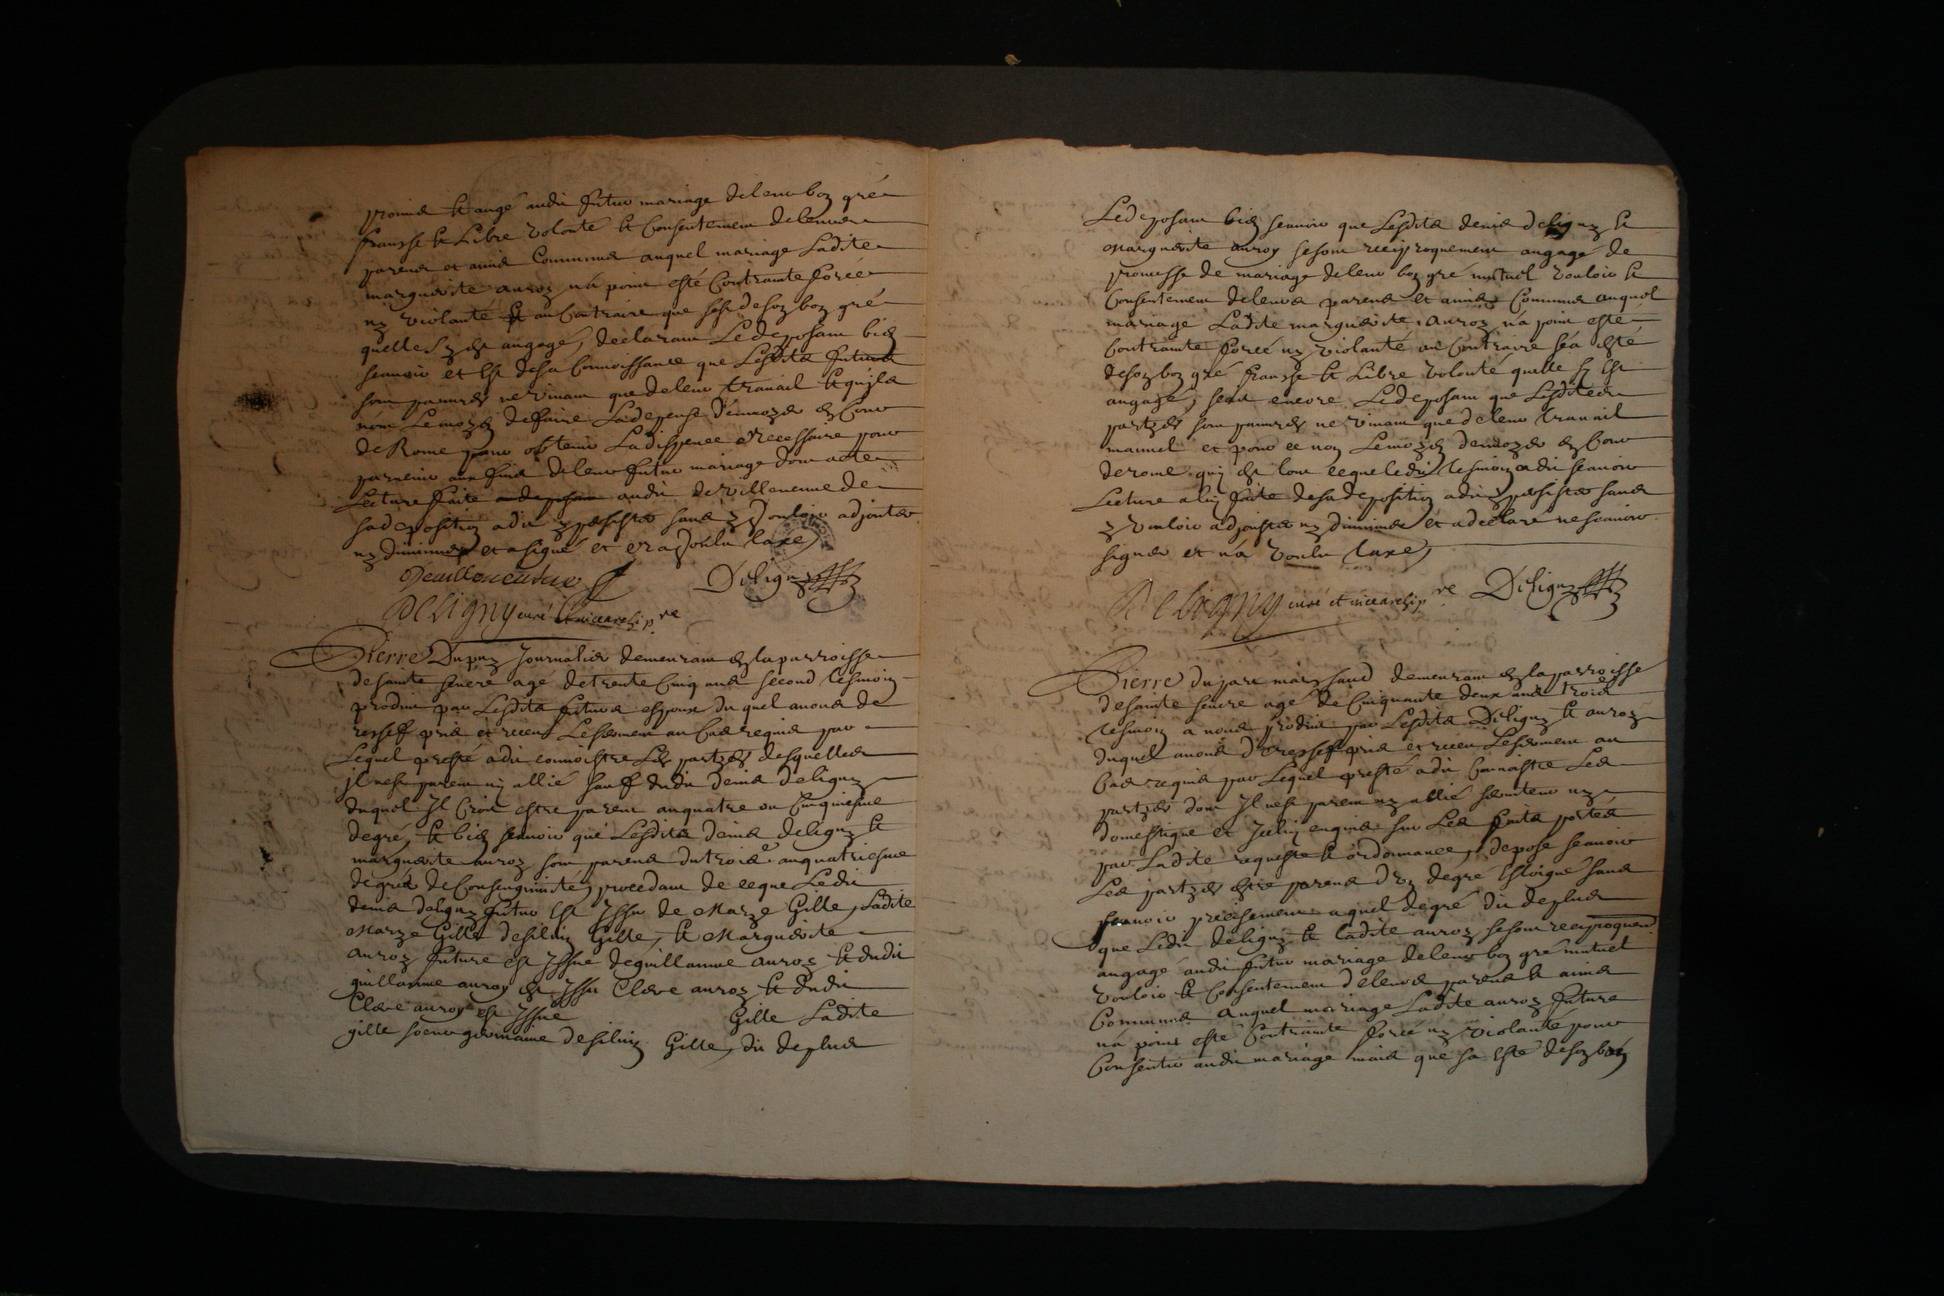 promis et angé audit futur mariage de leur bon gré
fransse et Libre volonté et Consentement de leurs
parens et amis Communs auquel mariage Ladite
marguerite auroy na point esté Contrainte forcée
ny violanté et au Contraire que sest de son bon gré
quelle sy est angagé, declarant Le deposant bien
scauoir et est de sa Connoissance que Lesdits futurs
sont pauures ne viuant que de leur trauail et quils
nont Le moyen deffaire La depense denuoyer en Cour
de Rome pour obtenir La dispence necessaire pour
paruenir aux fins de leur futur mariage dont acte
Lecture faite audit devilleneuue de
sa deposition a dit y persister sans y vouloir adjouter
ny diminuer et a signé et na voulu taxe
Deuilleneufue Deligny
Deligny curé et vicearchip.re
Pierre Dupuy Journalier demeurant en la parroisse
de sainte seuere agé de trente Cinq ans second tesmoin
produit par Lesdits futurs espoux duquel auons de
resseff pris et receu Le serment au Cas requis par
Lequel presté a dit connoistre Les partyes desquelles
Jl nest parent ny allié sauff dudit denis deligny
duquel Jl Croit estre parent au quatre ou Cinquiesme
degré, et bien scauoir que Lesdits denis deligny et
marguerite auroy sont parens du trois.e au quatriesme
degrés de Consenguinité, procedant de ce que Ledit
denis deligny futur est Jssu de Marye Gille, Ladite
Marye Gille de silvin Gille, et Marguerite
auroy future est Jssue de guillaume auroy et dudit
guillaume auroy est Jssu Clere auroy et dudit
Clere auroy est Jssue Gille Ladite
gille soeur germaine de silvin Gille, dit de plus
Le deposant bien scauoir que Lesdits denis deligny et
Marguerite auroy se sont reciproquement angagé de
promesse de mariage de leur bon gré mutuel vouloir et
Consentement de leurs parens et amis Communs auquel
mariage Ladite marguerite auroy na point esté
Contrainte forcée ny violanté au Contraire sea esté
de son bon gré fransse et Libre volonté quelle sy est
angagé, scait encore Le deposant que Lesdites
partyes sont pauures ne viuant que de leur trauail
manuel et pour ce non Le moyen denuoyer en Cour
de rome quy est tout ce que ledit tesmoin a dit scauoir
Lecture a luy faite de sa deposition a dit y persister sans
y vouloir adjouster ny diminuer et a declaré ne scauoir
signer et na voulu taxe
Deligny curé et vicearchip.re Deligny
Pierre dujart marchand demeurant en la parroisse
de sainte seuere agé de Cinquante deux ans trois
tesmoin a nous produit par Lesdits Deligny et auroy
duquel auons de resseff pris et receu Le serment au
Cas requis par Lequel presté a dit Connoistre Les
partyes dont Jl nest parent ny allié seruiteur ny
domestique et Jceluy enquis sur Les faits portés
par Ladite requeste et ordonnance, depose scauoir
Les partyes estre parens dun degré Esloigné sans
scauoir precisement a quel degré dit de plus
que Ledit deligny et ladite auroy se sont reciproquent
angagé audit futur mariage de leur bon gré mutuel
vouloir et Consentement de leurs parens et amis
Communs auquel mariage Ladite auroy future
na point esté Contrainte forcée ny violanté pour
Consentir audit mariage mais que sa esté de son bon